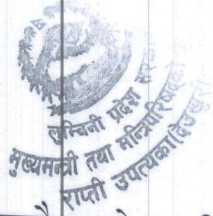 लुम्बिनी प्रदेश सरकार
मुख्यमन्त्री तथा मन्त्रिपरिषद्को
राप्ती उपत्यका (देउखुरी)